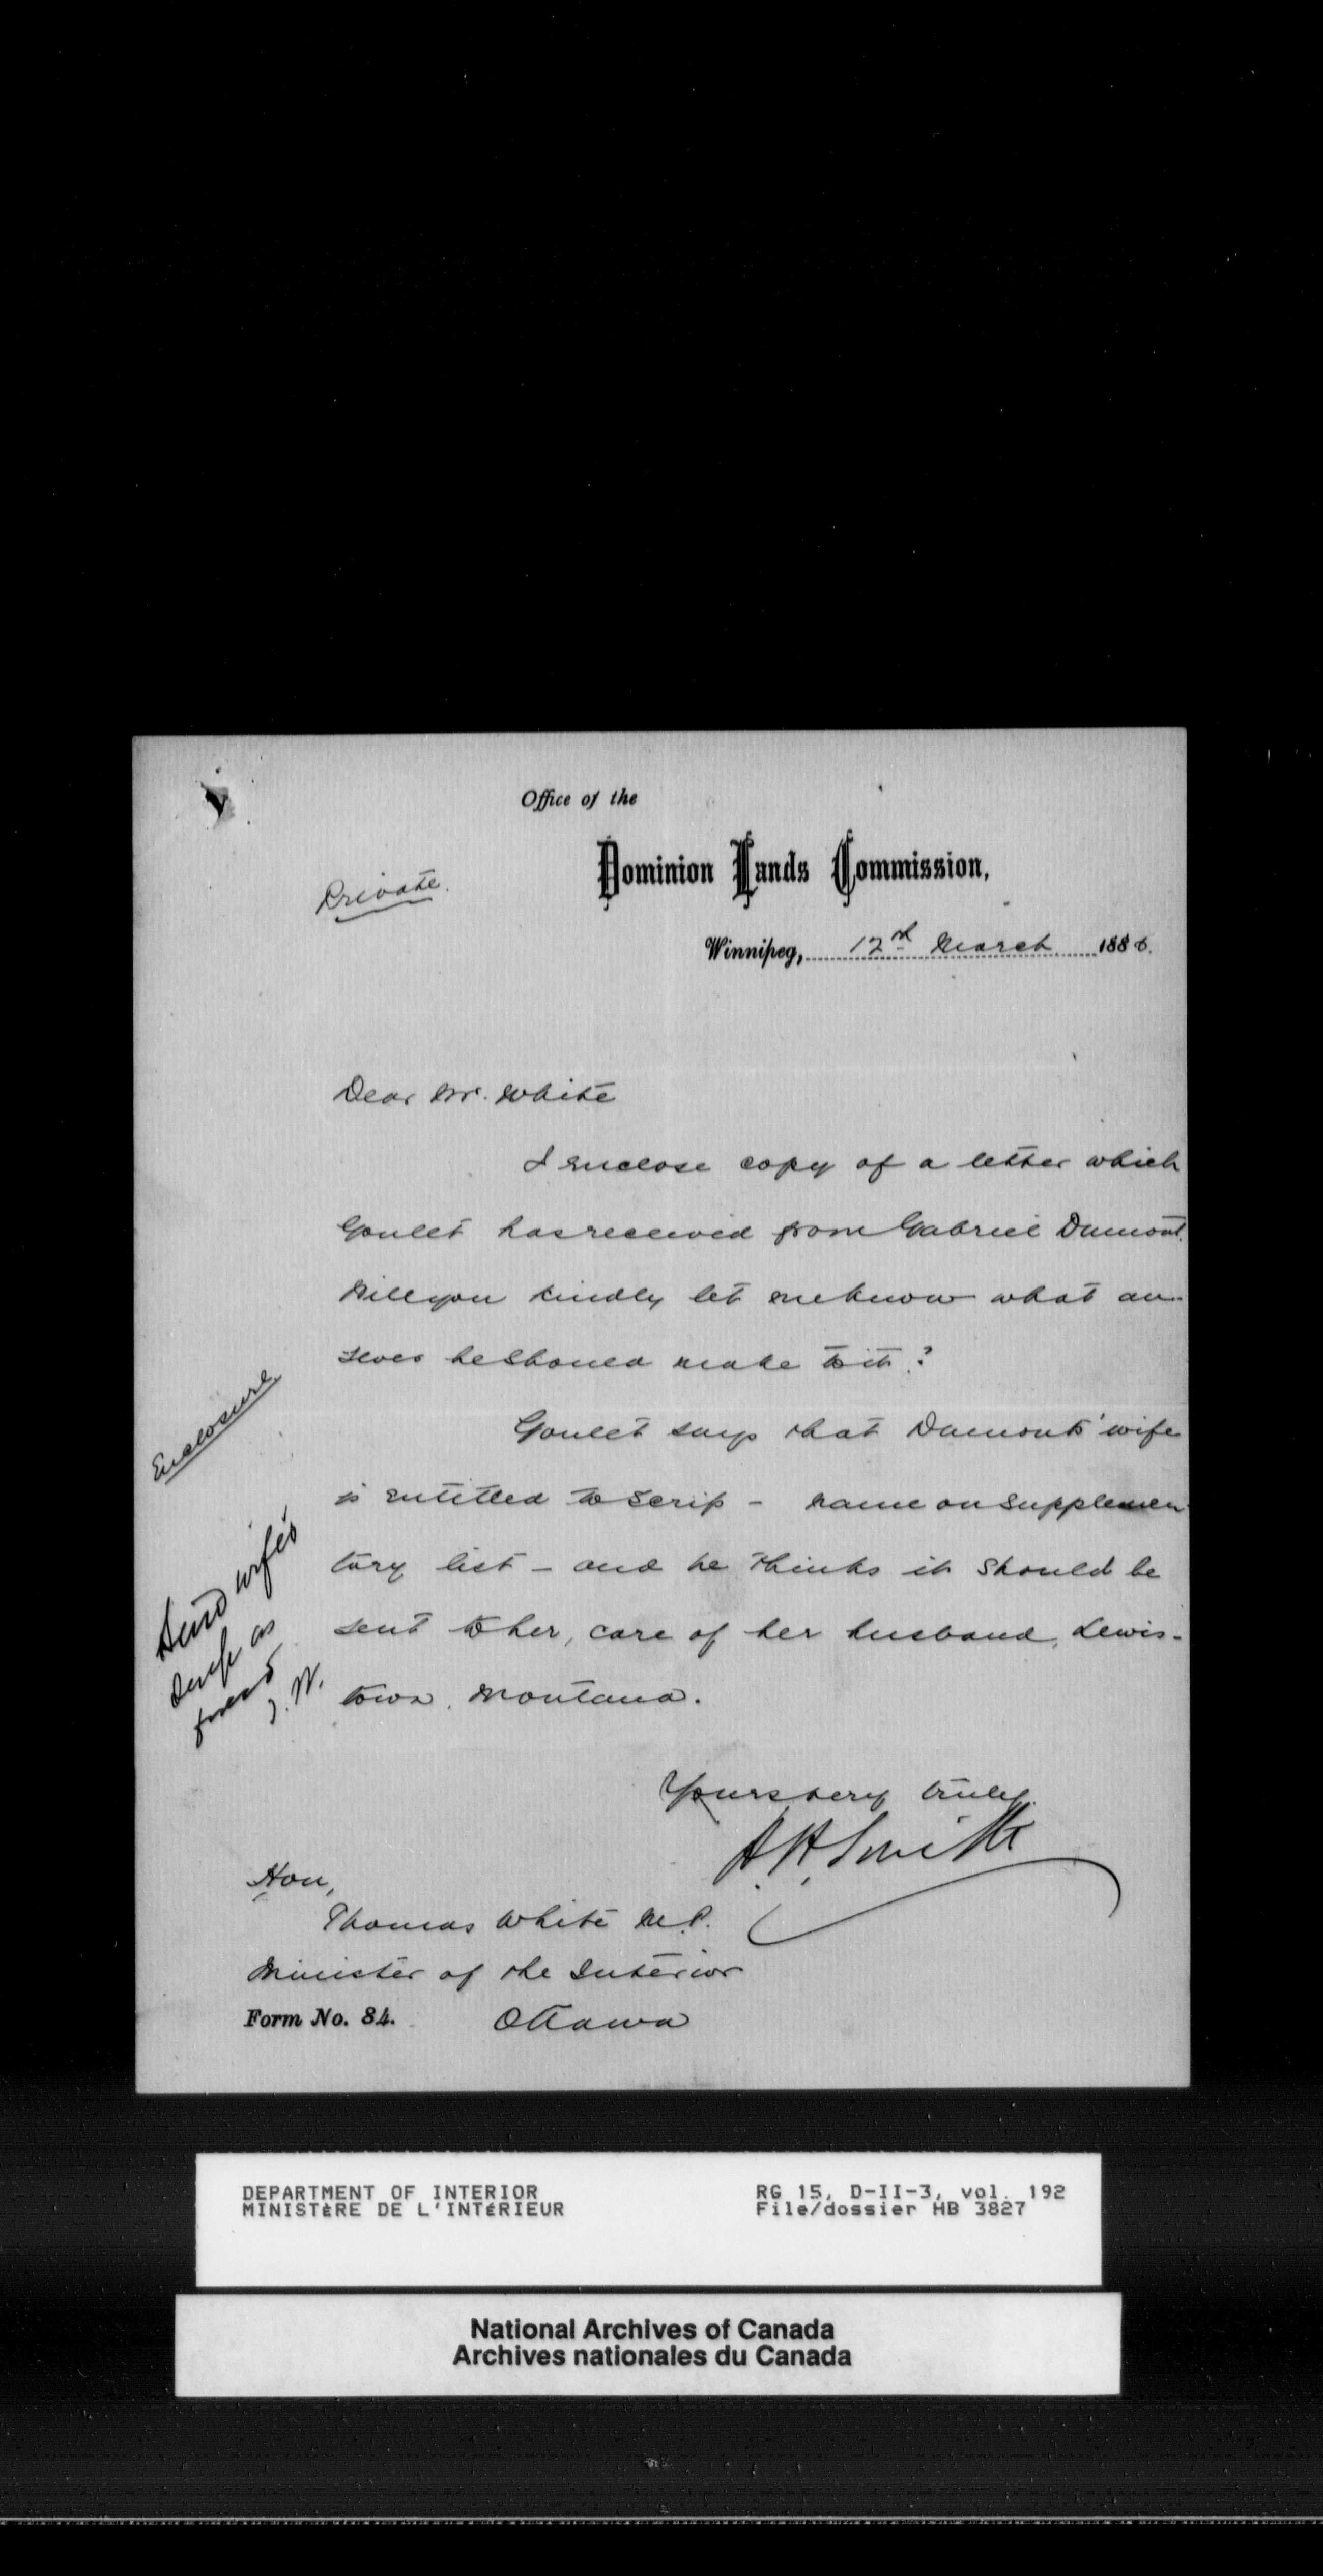 Office of the
Dominion Lands Commission,
Private.
Winnipeg, 12th March 1886.
Dear Mr. White
I enclose copy of a letter which
Goulet has received from Gabriel Dumont.
Will you kindly let me know what an-
swer he should make to it?
Goulet says that Dumont's wife
is entitled to scrip - name on supplemen
tary list - and he thinks it should be
sent to her, care of her husband, Lewis-
town, Montana.
Enclosure
Send wife's
scrip as
T. W.
Yours very truly
H. H. Smith
Hon,
Thomas White M.P.
Minister of the Interior
Form No. 84.
Ottawa
DEPARTMENT OF INTERIOR
MINISTÈRE DE L'INTÉRIEUR
RG 15, D-II-3, vol. 192
File/dossier HB 3827
National Archives of Canada
Archives nationales du Canada